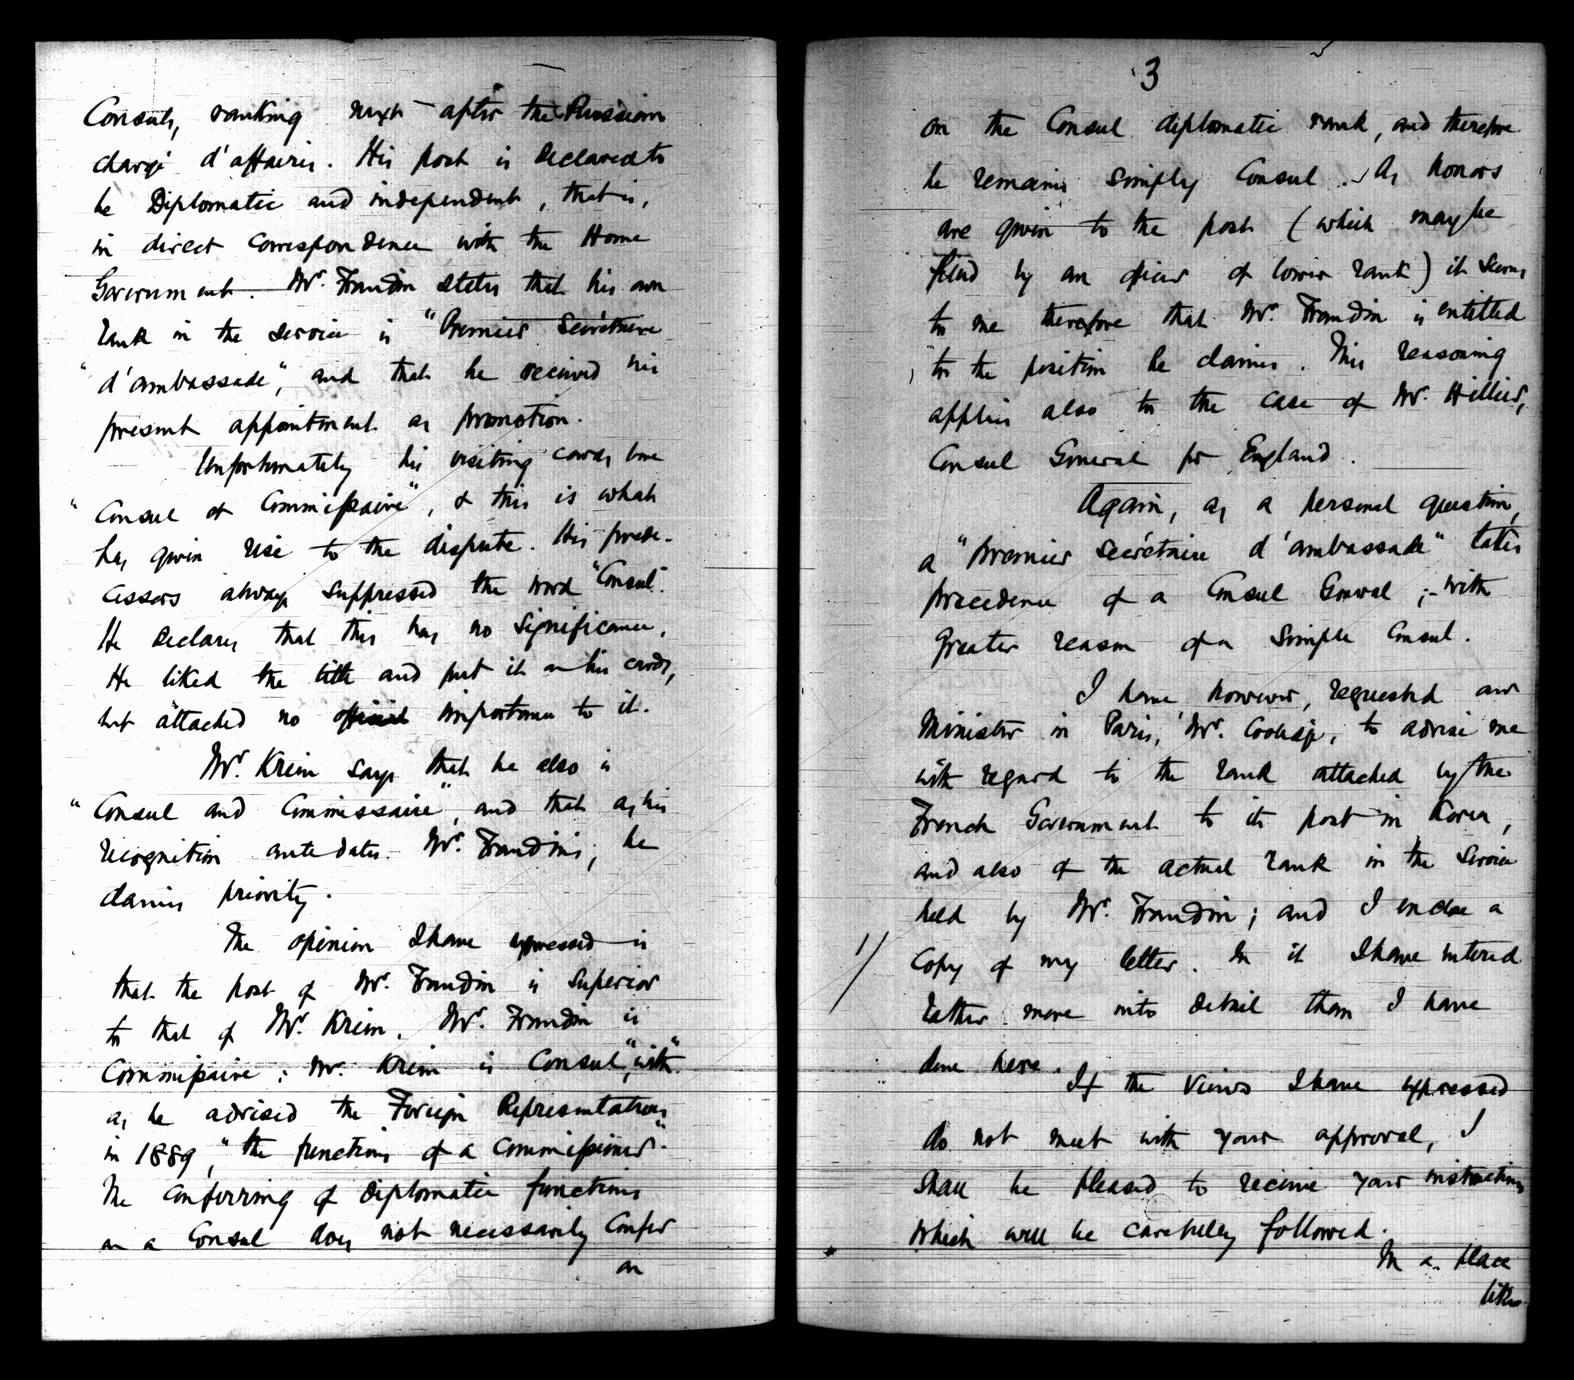 Consuls, ranking next after the Russian
chargé d'affaires. His post is declared to
be Diplomatic and independent, that is,
in direct correspondence with the Home
Government. Mr. Frandin states that his own
rank in the service is "Premier Secrétaire
"d'ambassade", and that he received his
present appointment as promotion.
Unfortunately his visiting cards bore
"Consul et Commissaire", & this is what
has given rise to the dispute. His prede-
cessors always suppressed the word "Consul".
He declares that this has no significance.
He liked the title and put it on his cards,
but attached no official importance to it.
Mr. Krien says that he also is
"Consul and Commissaire", and that as his
recognition antedates Mr. Frandin's, he
claims priority.
The opinion I have expressed is
that the post of Mr. Frandin is superior
to that of Mr. Krien. Mr. Frandin is
Commissaire; Mr. Krien is Consul, "with"
as he advised the Foreign Representatives
in 1889, "the functions of a commissioner".
The conferring of diplomatic functions
on a Consul does not necessarily confer
on
3
on the Consul diplomatic rank, and therefore
he remains simply Consul. As honors
are given to the post (which may be
filled by an officer of lower rank) it seems
to me therefore that Mr. Frandin is entitled
to the position he claims. This reasoning
applies also to the case of Mr. Hillier,
Consul General for England.
Again, as a personal question,
a "Premier Secrétaire d'ambassade" takes
precedence of a Consul General; - with
greater reason of a simple Consul.
I have however, requested our
Minister in Paris, Mr. Coolidge, to advise me
with regard to the rank attached by the
French Government to its post in Korea,
and also of the actual rank in the service
held by Mr. Frandin; and I enclose a
1/ copy of my letter. In it I have entered
rather more into detail than I have
done here.
If the views I have expressed
do not meet with your approval, I
shall be pleased to receive your instructions
which will be carefully followed.
In a place
like